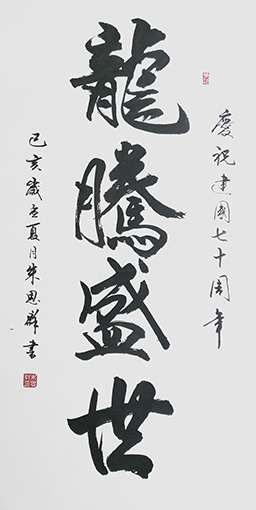 慶祝建國七十周年
龍騰盛世
己亥歲在夏月朱思群書